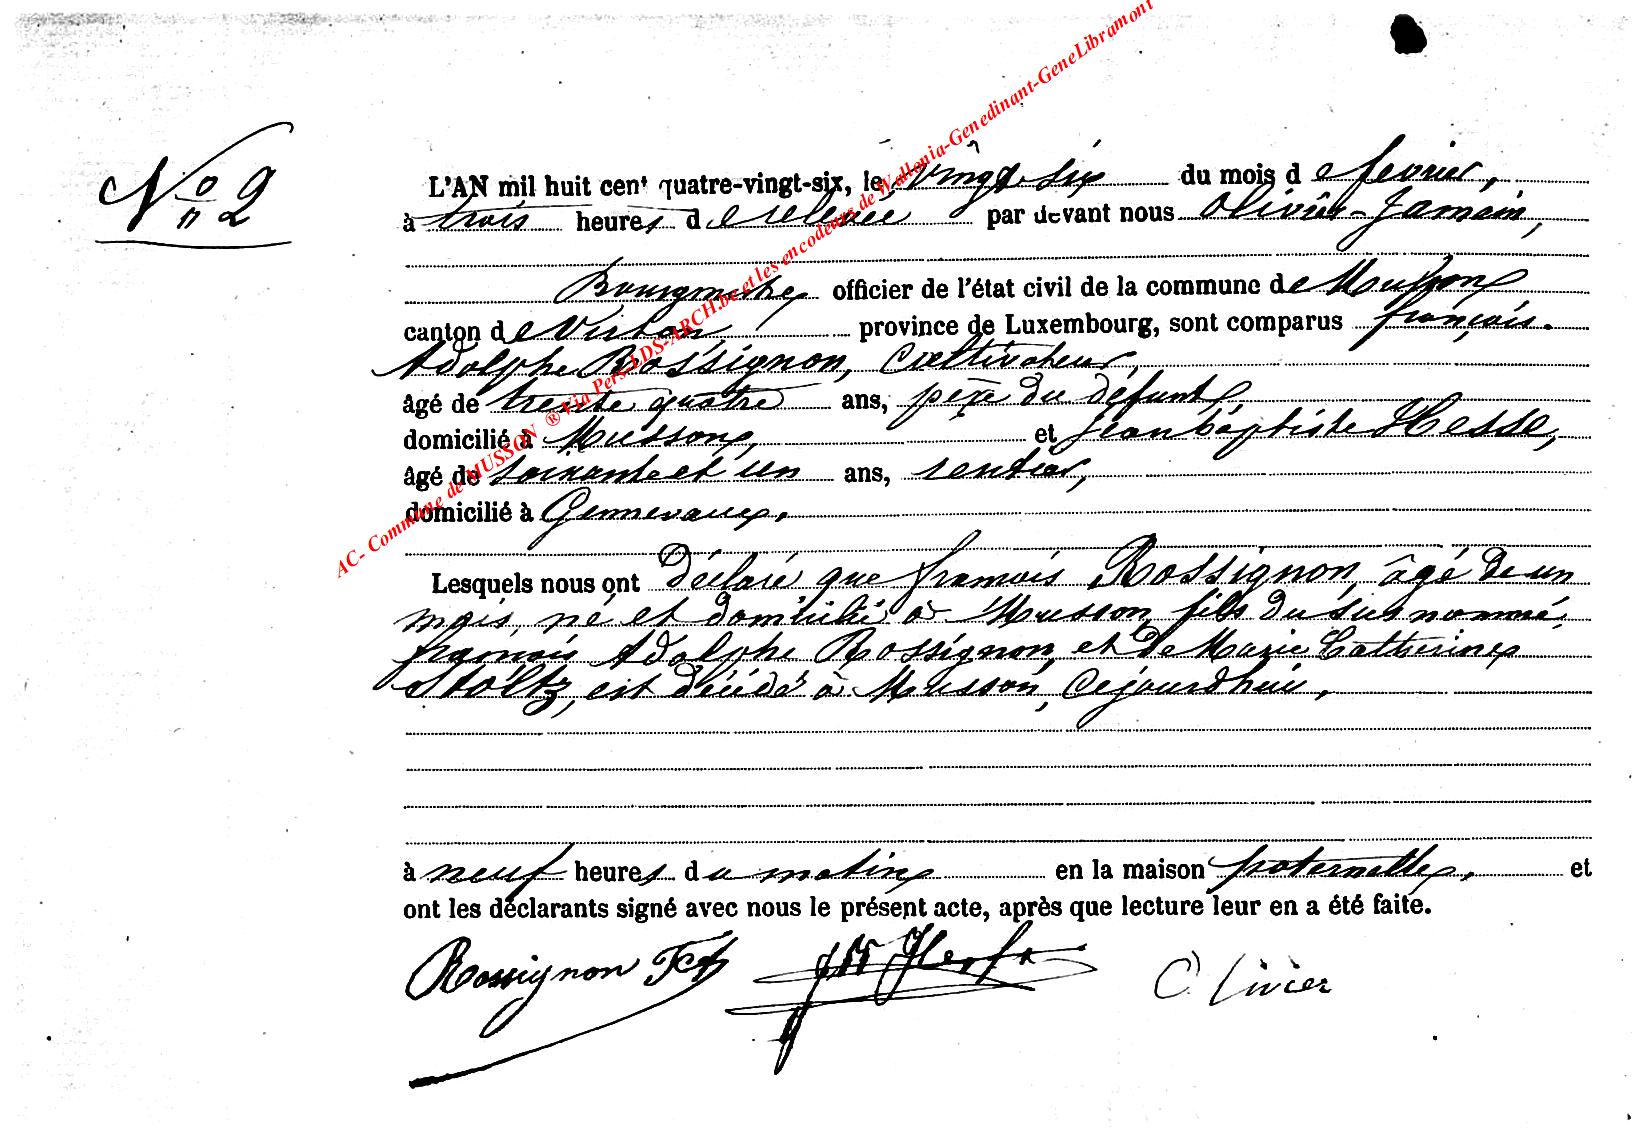 AC- Commune de MUSSON ® Via Pers-LDS-ARCH.be et les encodeurs de Wallonia-Genedinant-GeneLibramont
No 2
L'AN mil huit cent quatre-vingt-six, le vingt six du mois de fevrier,
à trois heures de relevée par devant nous Olivier-Jamain,
Bourgmestre officier de l'état civil de la commune de Musson
canton de Virton province de Luxembourg, sont comparus françois.
Adolphe Rossignon, Cultivateur,
âgé de trente quatre ans, père du défunt,
domicilié à Musson, et jean baptiste Hesse,
âgé de soixante et un ans, rentier,
domicilié à Gennevaux.
Lesquels nous ont déclaré que françois Rossignon, âgé de un
mois, né et domicilié à Musson, fils du susnommé,
françois Adolphe Rossignon, et de Marie Catherine
Stoltz, est décédé à Musson, cejourdhui,
à neuf heures du matin en la maison paternelle, et
ont les déclarants signé avec nous le présent acte, après que lecture leur en a été faite.
Rossignon Olivier